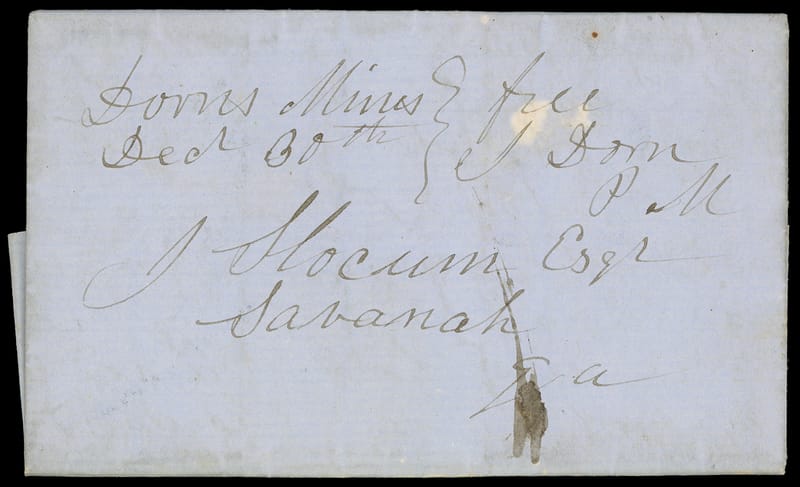 Dorns Mines } free
Decr 30th } J Dorn
P M
J Slocum Esqr
Savanah
Ga